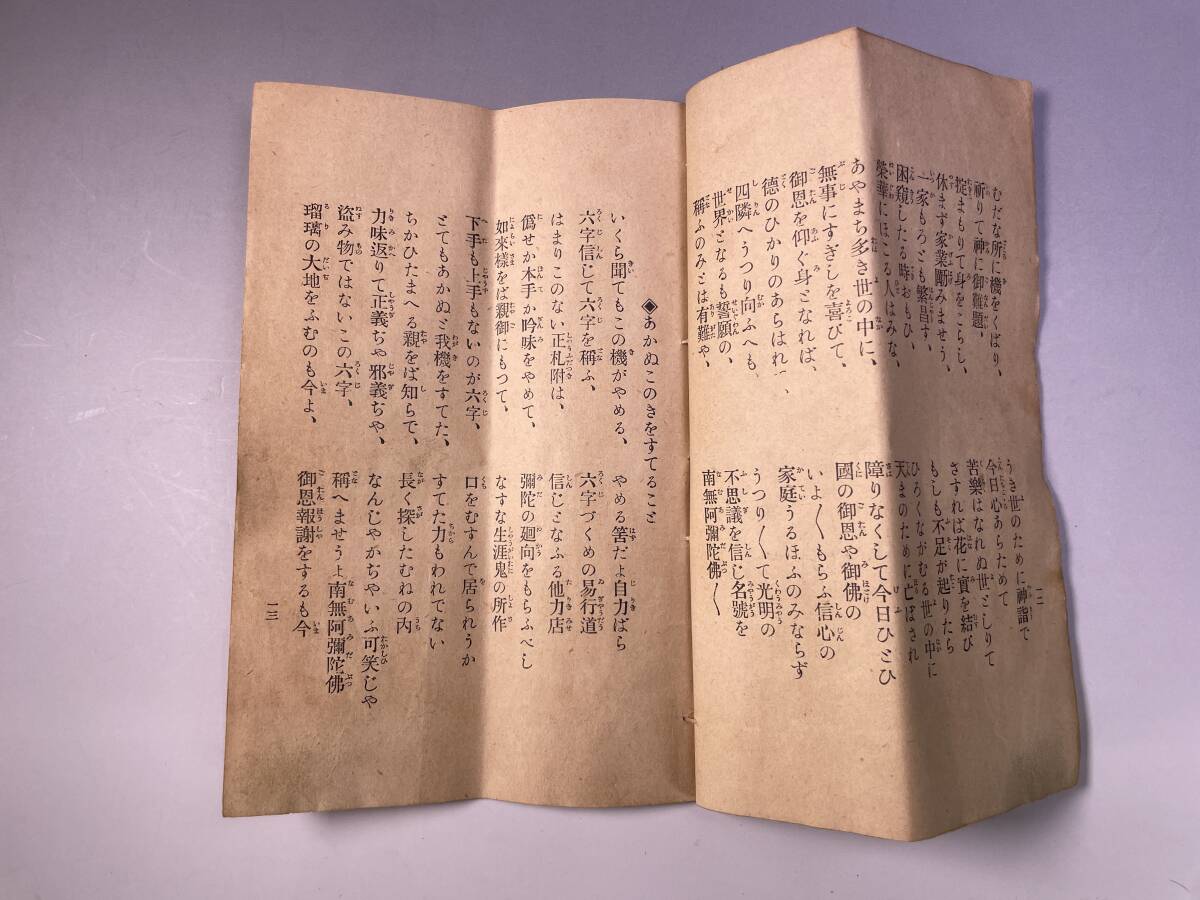 一二
むだな所に機をくばり、
うき世のために神詣で
祈りて神に御難題、
今日心あらためて
掟まもりて身をこらし、
苦樂はなれぬ世としりて
休まず家業勵みませう、
さすれば花に實を結び
一家もろとも繁昌す、
もしも不足が起りたら
困窺したる時おもひ、
ひろくながむる世の中に
榮華にほこる人はみな、
天まのために亡ぼされ
あやまち多き世の中に、
障りなくして今日ひとひ
無事にすぎしを喜びて、
國の御恩や御佛の
御恩を仰ぐ身となれば、
いよ〱もらふ信心の
德のひかりのあらはれ、
家庭うるほふのみならず
四隣へうつり向ふへも、
うつり〱て光明の
世界となるも誓願の、
不思議を信じ名號を
稱ふのみとは有難や、
南無阿彌陀佛〱
◈あかぬこのきをすてること
いくら聞てもこの機がやめる、
やめる筈だよ自力ばら
六字信じて六字を稱ふ、
六字づくめの易行道
はまりこのない正札附は、
信じとなふる他力店
僞せか本手か吟味をやめて、
彌陀の廻向をもらふべし
如來樣をば親御にもつて、
なすな生涯鬼の所作
下手も上手もないのが六字、
口をむすんで居られうか
とてもあかぬと我機をすてた、
すてた力もわれでない
ちかひたまへる親をば知らで、
長く探したむねの内
力味返りて正義ぢや邪義ぢや、
なんじやかぢやいふ可笑じや
盜み物ではないこの六字、
稱へませうよ南無阿彌陀佛
瑠璃の大地をふむのも今よ、
御恩報謝をするも今
一三